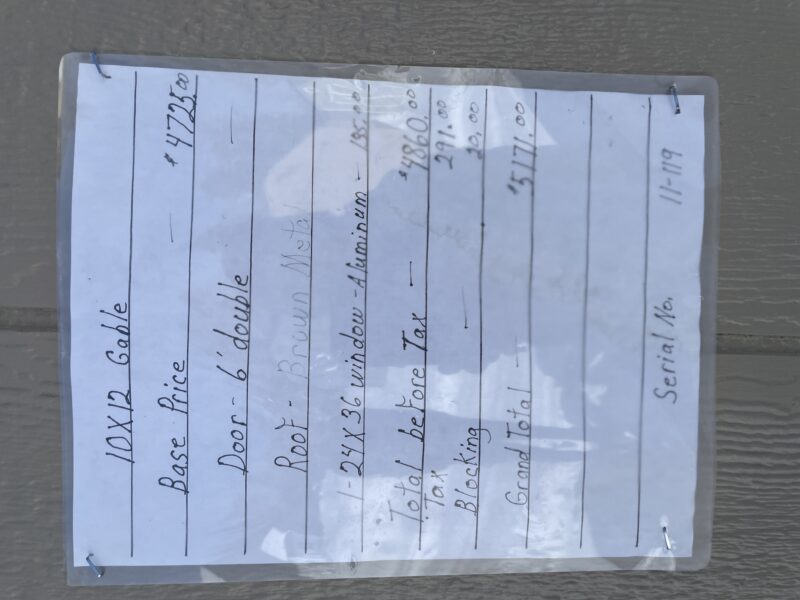 10X12 Gable
Base Price — $4725.00
Door - 6' double —
Roof - Brown Metal
1 - 24X36 window - Aluminum - 135.00
Total before Tax — $4860.00
Tax 291.00
Blocking — 20.00
Grand Total — $5171.00
Serial No. 11-119